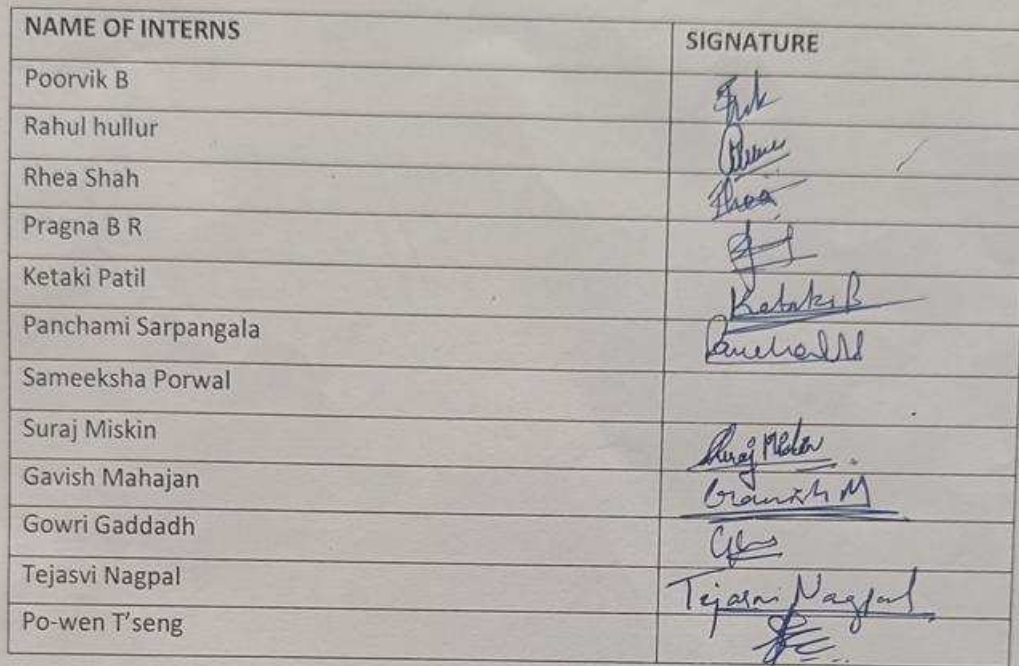 NAME OF INTERNS SIGNATURE
Poorvik B
Rahul hullur
Rhea Shah
Pragna B R
Ketaki Patil Ketaki B
Panchami Sarpangala
Sameeksha Porwal
Suraj Miskin Suraj Miskin
Gavish Mahajan Gavish M
Gowri Gaddadh
Tejasvi Nagpal Tejasvi Nagpal
Po-wen T'seng